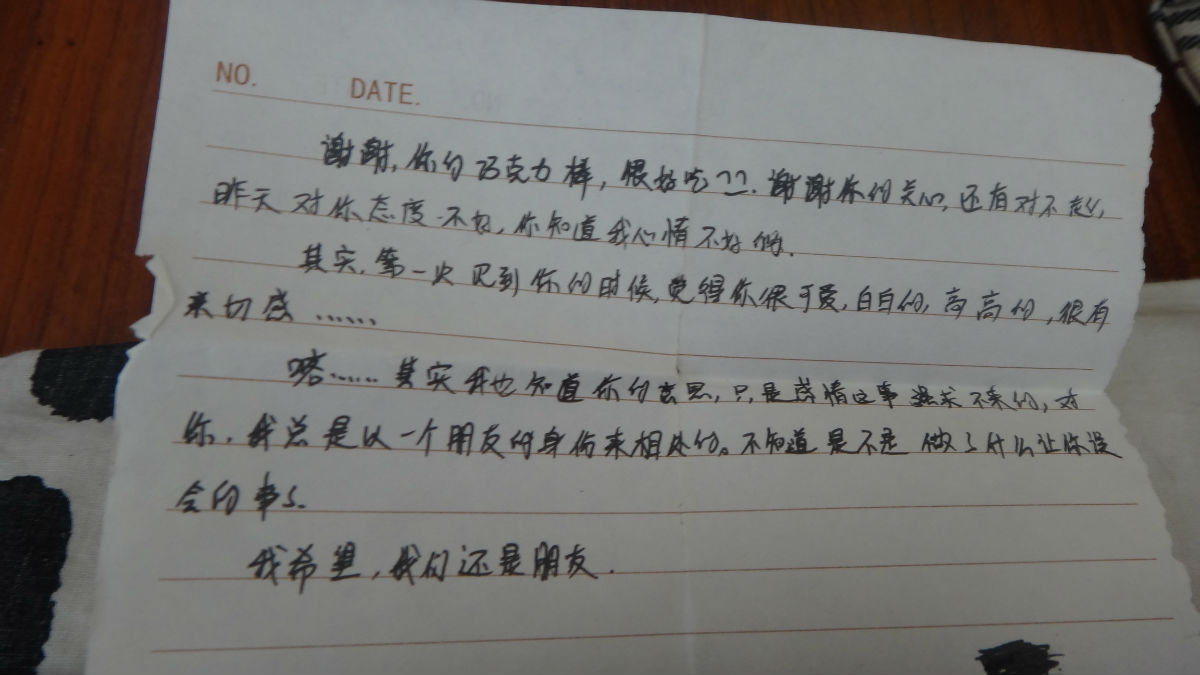 NO. DATE.
谢谢,你的巧克力棒,很好吃^^.谢谢你的关心,还有对不起,
昨天对你态度不好,你知道我心情不好的.
其实,第一次见到你的时候,觉得你很可爱,白白的,高高的,很有
亲切感……
嗒……其实我也知道你的意思,只是感情这事强求不来的,对
你,我总是以一个朋友的身份来相处的。不知道是不是做了什么让你误
会的事了.
我希望,我们还是朋友.